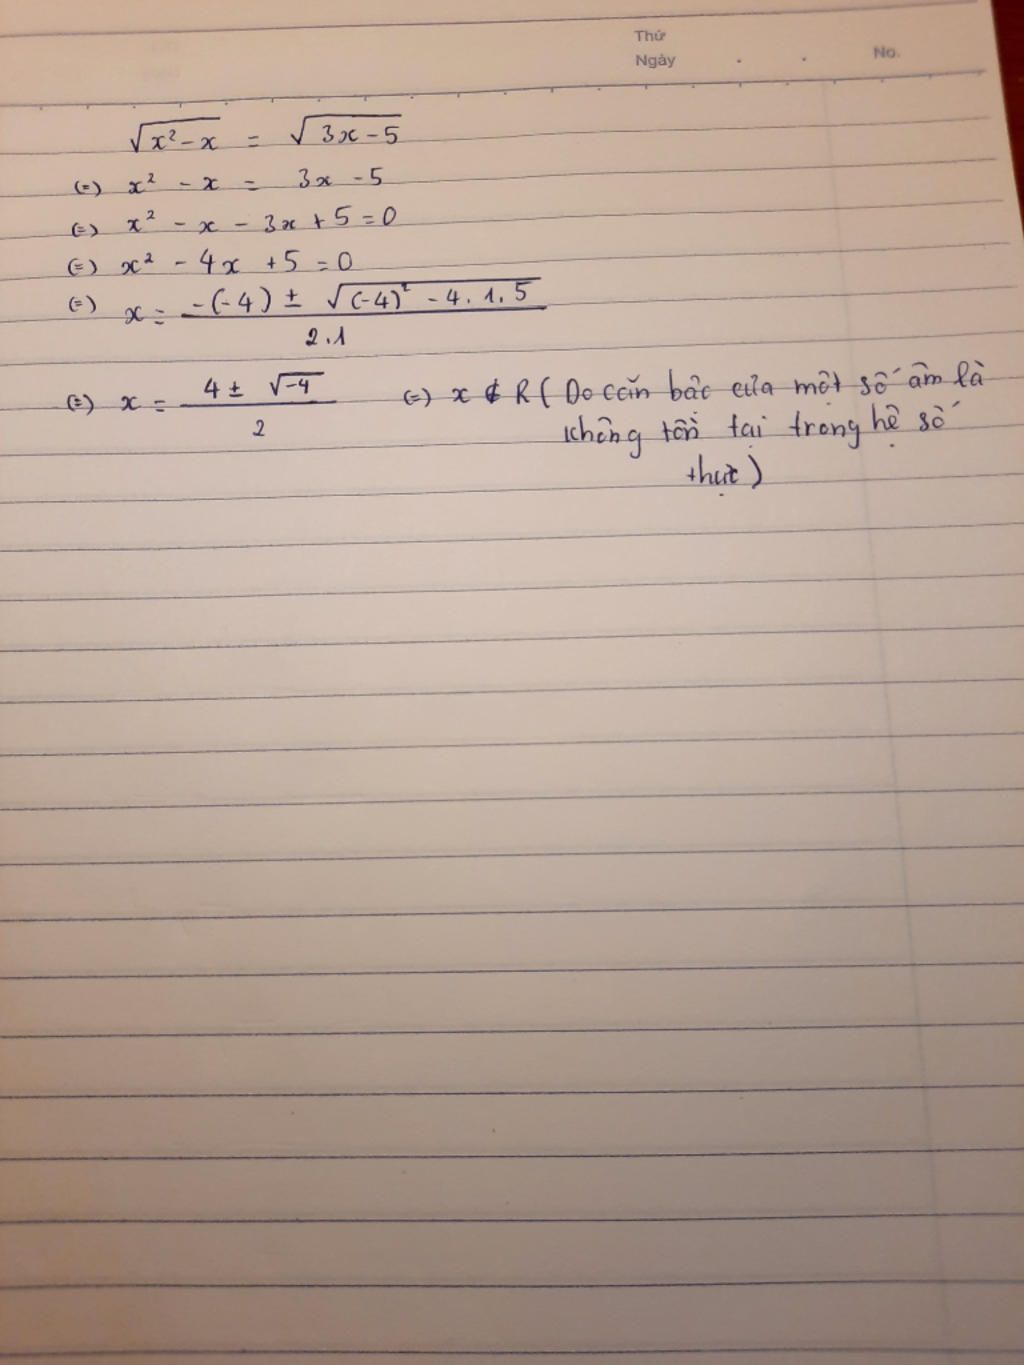 Thứ
Ngày . . No.
√(x² - x) = √(3x - 5)
(=) x² - x = 3x - 5
(=) x² - x - 3x + 5 = 0
(=) x² - 4x + 5 = 0
(=) x = (-(-4) ± √((-4)² - 4.1.5)) / 2.1
(=) x = (4 ± √-4) / 2 (=) x ∉ R ( Do căn bậc của một số âm là
không tồn tại trong hệ số
thực )